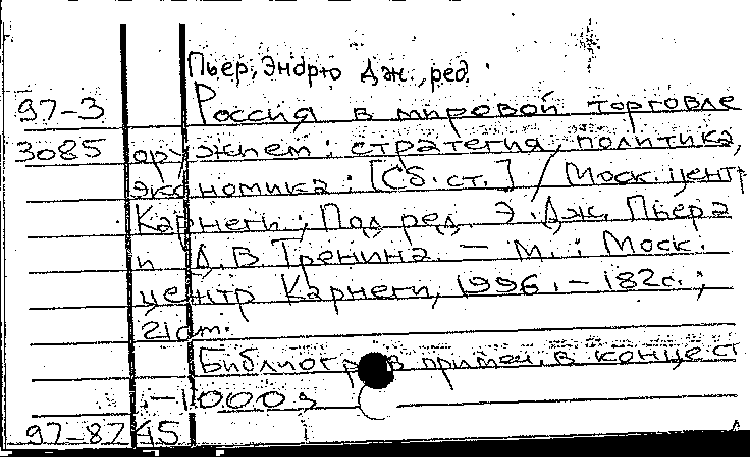 Пьер, Эндрю Дж., ред.
97-3 Россия в мировой торговле
3085 оружием: стратегия, политика,
экономика: [Сб. ст.] / Моск. центр
Карнеги; Под ред. Э. Дж. Пьера
и Д.В. Тренина. - М.: Моск.
центр Карнеги, 1996. - 182с.;
21см.
Библиогр в примеч. в конце ст
-1000э
97-8745